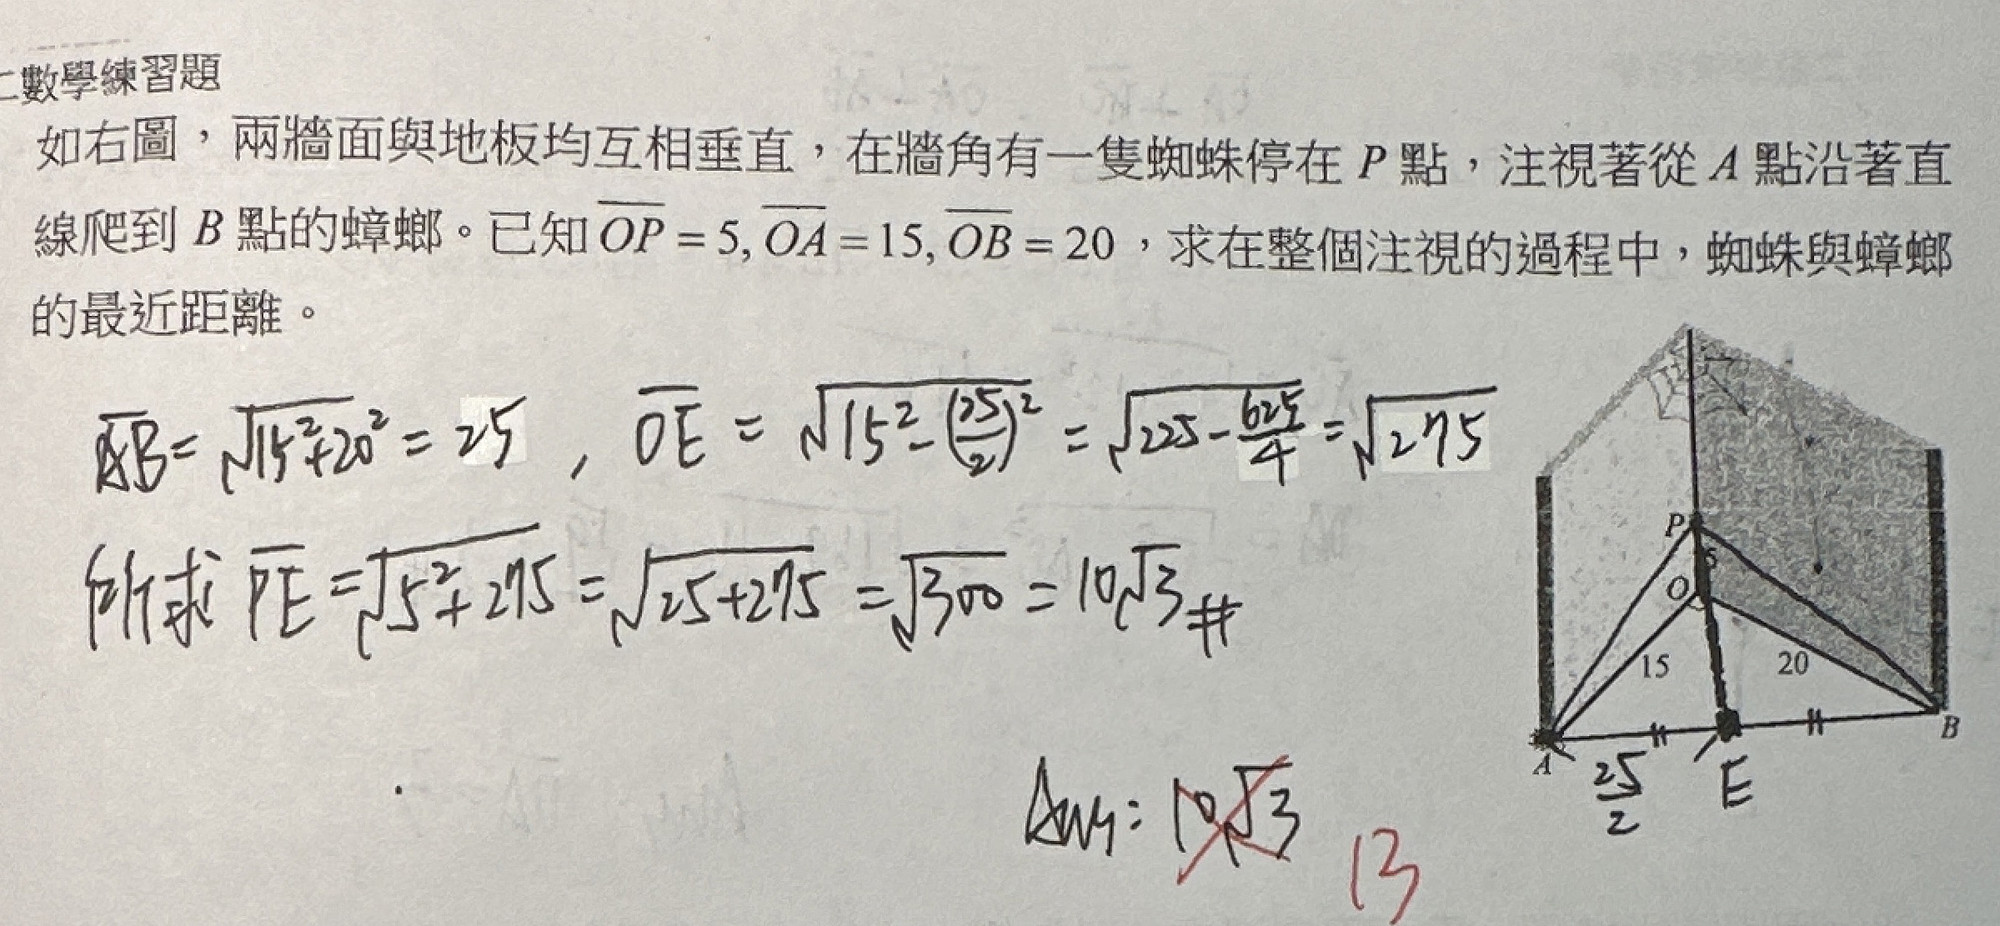 二數學練習題
如右圖，兩牆面與地板均互相垂直，在牆角有一隻蜘蛛停在 P 點，注視著從 A 點沿著直
線爬到 B 點的蟑螂。已知 \overline{OP} = 5, \overline{OA} = 15, \overline{OB} = 20，求在整個注視的過程中，蜘蛛與蟑螂
的最近距離。
\overline{AB} = \sqrt{15^2+20^2} = 25 , \overline{OE} = \sqrt{15^2-(\frac{25}{2})^2} = \sqrt{225-\frac{625}{4}} = \sqrt{275}
所求 \overline{PE} = \sqrt{5^2+275} = \sqrt{25+275} = \sqrt{300} = 10\sqrt{3} #
Ans: 10\sqrt{3}
13
P
5
O
15
20
A
B
\frac{25}{2}
E